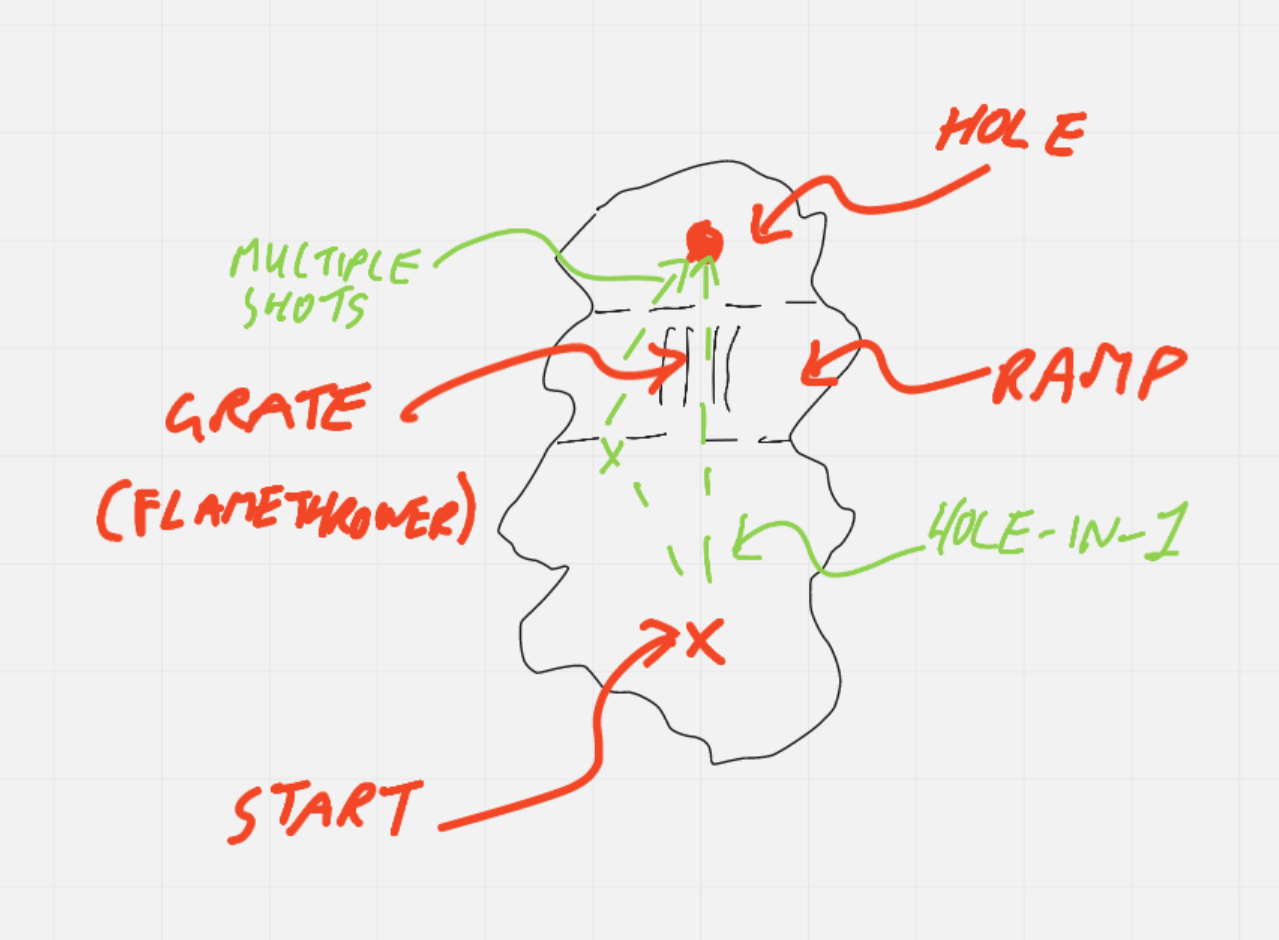 HOLE
MULTIPLE
SHOTS
GRATE
(FLAMETHROWER)
RAMP
HOLE-IN-1
X
X
START